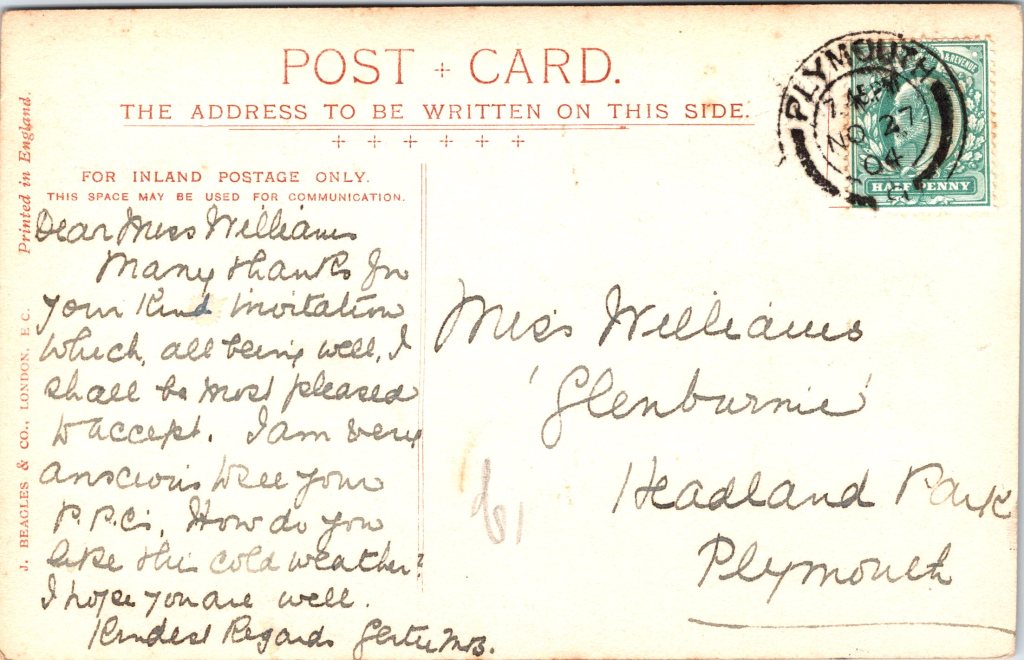 POST + CARD.
THE ADDRESS TO BE WRITTEN ON THIS SIDE.
+ + + + + +
FOR INLAND POSTAGE ONLY.
THIS SPACE MAY BE USED FOR COMMUNICATION.
Printed in England.
J. BEAGLES & CO., LONDON, E.C.
Dear Miss Williams
Many thanks for
your kind invitation
which, all being well, I
shall be most pleased
to accept. I am very
anxious to see your
P.P.C's. How do you
like this cold weather?
I hope you are well.
Kindest Regards Gertie
Miss Williams
'Glenburnie'
Headland Park
Plymouth
PLYMOUTH
NO 27
04
& REVENUE
HALFPENNY